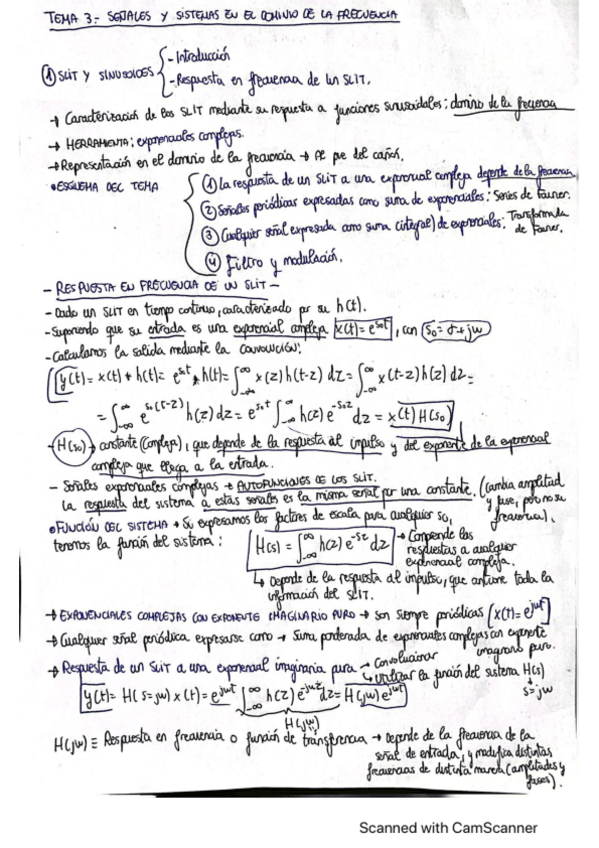 TEMA 3.- SEÑALES Y SISTEMAS EN EL DOMINIO DE LA FRECUENCIA
① SLIT Y SINUSOIDES { - Introducción
- Respuesta en frecuencia de un SLIT.
→ Caracterización de los SLIT mediante su respuesta a funciones sinusoidales: dominio de la frecuencia
→ HERRAMIENTA: exponenciales complejas.
→ Representación en el dominio de la frecuencia → Al pie del cañón.
• ESQUEMA DEL TEMA
① La respuesta de un SLIT a una exponencial compleja depende de la frecuencia
② Señales periódicas expresadas como suma de exponenciales: Series de Fourier.
③ Cualquier señal expresada como suma (integral) de exponenciales: Transformada de Fourier.
④ Filtro y modulación.
- RESPUESTA EN FRECUENCIA DE UN SLIT -
- Dado un SLIT en tiempo continuo, caracterizado por su h(t).
- Suponiendo que su entrada es una exponencial compleja x(t) = e^{s₀t}, con s₀ = σ + jω
- Calculamos la salida mediante la CONVOLUCIÓN:
y(t) = x(t) * h(t) = e^{s₀t} * h(t) = ∫_{-∞}^{∞} x(z) h(t-z) dz = ∫_{-∞}^{∞} x(t-z) h(z) dz =
= ∫_{-∞}^{∞} e^{s₀(t-z)} h(z) dz = e^{s₀t} ∫_{-∞}^{∞} h(z) e^{-s₀z} dz = x(t) H(s₀)
- H(s₀) → constante (compleja), que depende de la respuesta al impulso y del exponente de la exponencial
compleja que llega a la entrada.
- Señales exponenciales complejas → AUTOFUNCIONES DE LOS SLIT.
La respuesta del sistema a estas señales es la misma señal por una constante. (cambia amplitud
y fase, pero no su frecuencia).
• FUNCIÓN DEL SISTEMA → Si expresamos los factores de escala para cualquier s₀,
tenemos la función del sistema: H(s) = ∫_{-∞}^{∞} h(z) e^{-sz} dz → Comprende las
respuestas a cualquier
exponencial compleja.
↳ Depende de la respuesta al impulso, que contiene toda la
información del SLIT.
→ EXPONENCIALES COMPLEJAS CON EXPONENTE IMAGINARIO PURO → son siempre periódicas [x(t) = e^{jωt}]
→ Cualquier señal periódica expresarse como → Suma ponderada de exponenciales complejas con exponente
imaginario puro.
→ Respuesta de un SLIT a una exponencial imaginaria pura → Convolucionar
↳ Utilizar la función del sistema H(s)
↓
s = jω
y(t) = H(s = jω) x(t) = e^{jωt} ∫_{-∞}^{∞} h(z) e^{-jωz} dz = H(jω) e^{jωt}
H(jω)
H(jω) ≡ Respuesta en frecuencia o función de transferencia → Depende de la frecuencia de la
señal de entrada, y modifica distintas
frecuencias de distinta manera (amplitudes y
fases).
Scanned with CamScanner